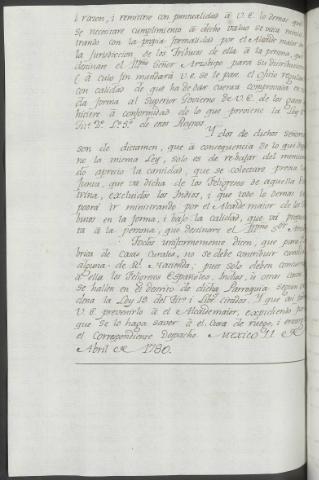 i razon, i remitirse con puntualidad à V.E. lo demas que
se necesitare cumplimento à dicho valuo se vaia minis-
trando con la propia formalidad por el Alcalde maior en
la Jurisdiccion de los Tributos de ella à la persona, que
destinare el Illmô Señor Arzobispo para su distribucion
(à cuio fin mandará V.E. se le pase el oficio regular)
con calidad de que ha de dar cuenta comprovada en
da forma al Superior Govierno de V.E. de los gastos
hiciere à conformidad de lo que previene la Ley
de estos Reynos.
Y los de dichos Señores
son de dictamen, que à consecuencia de lo que dispo-
ne la misma Ley, solo es de rebajar del menciona-
do aprecio la cantidad, que se colectare previa la
Junta, que va dicha de los Feligreses de aquella Doc-
trina, excluidos los Indios, i que todo lo demas
ir ministrando por el Alcalde maior de los tri-
butos en la forma, i bajo la calidad, que vá propues-
ta à la persona, que destinare el Illmô Sor Arzo
Todos uniformemente dicen, que para
brica de Casas Curales, no se debe contribuir cantidad
alguna de Rl Hacienda, pues solo deben concurrir
à ella los Feligreses Españoles, Indios, à otras
se hallen en el distrito de dicha Parroquia segun
dena la Ley 19. del titº i Libº citados. Y que así
V.E. prevenirlo à el Alcalde maior, expidiendo
que se lo haga saver à el Cura de ruego, i encargo
el correspondiente despacho. Mexico 11 de
Abril de 1780.